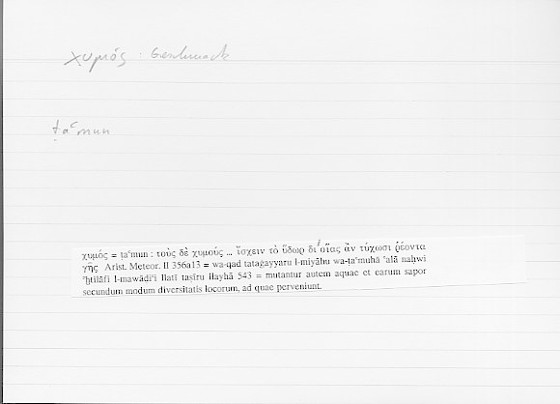 χυμός · Geschmack
ṭaʿmun
χυμός = ṭaʿmun : τοὺς δὲ χυμούς ... ἴσχειν τὸ ὕδωρ δι' οἵας ἂν τύχωσι ῥέοντα
γῆς Arist. Meteor. II 356a13 = wa-qad tataġayyaru l-miyāhu wa-ṭaʿmuhā ʿalā naḥwi
ʾḫtilāfi l-mawāḍiʿi llatī taṣīru ilayhā 543 = mutantur autem aquae et earum sapor
secundum modum diversitatis locorum, ad quae perveniunt.